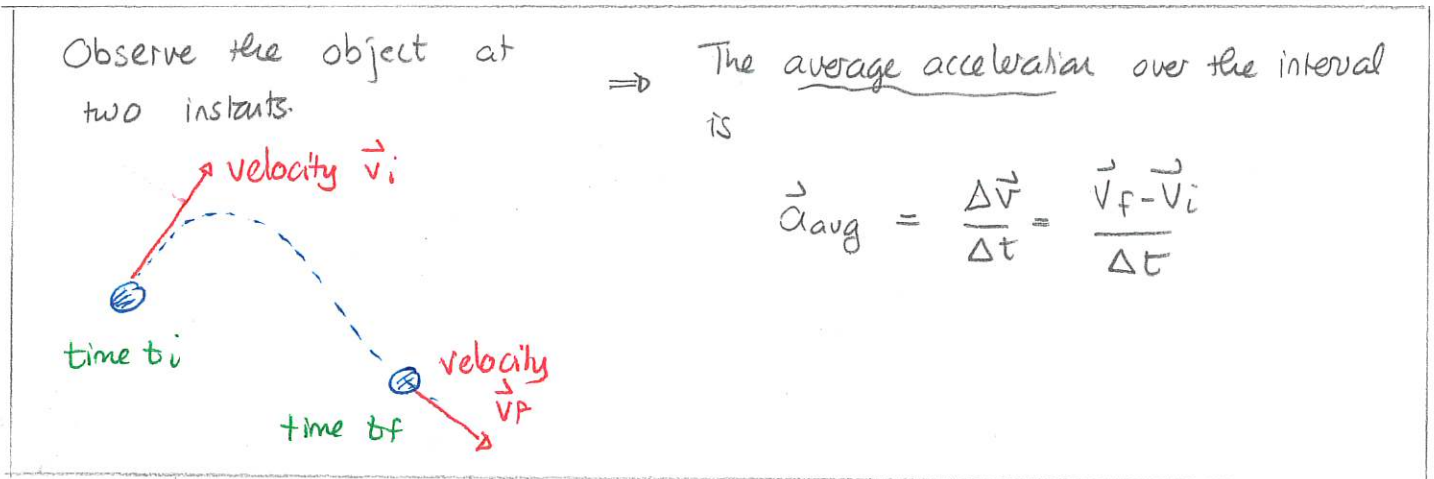 Observe the object at
two instants.
velocity v⃗i
time ti
velocity
v⃗f
time tf
⇒ The average acceleration over the interval
is
a⃗avg = Δv⃗/Δt = (v⃗f - v⃗i)/Δt